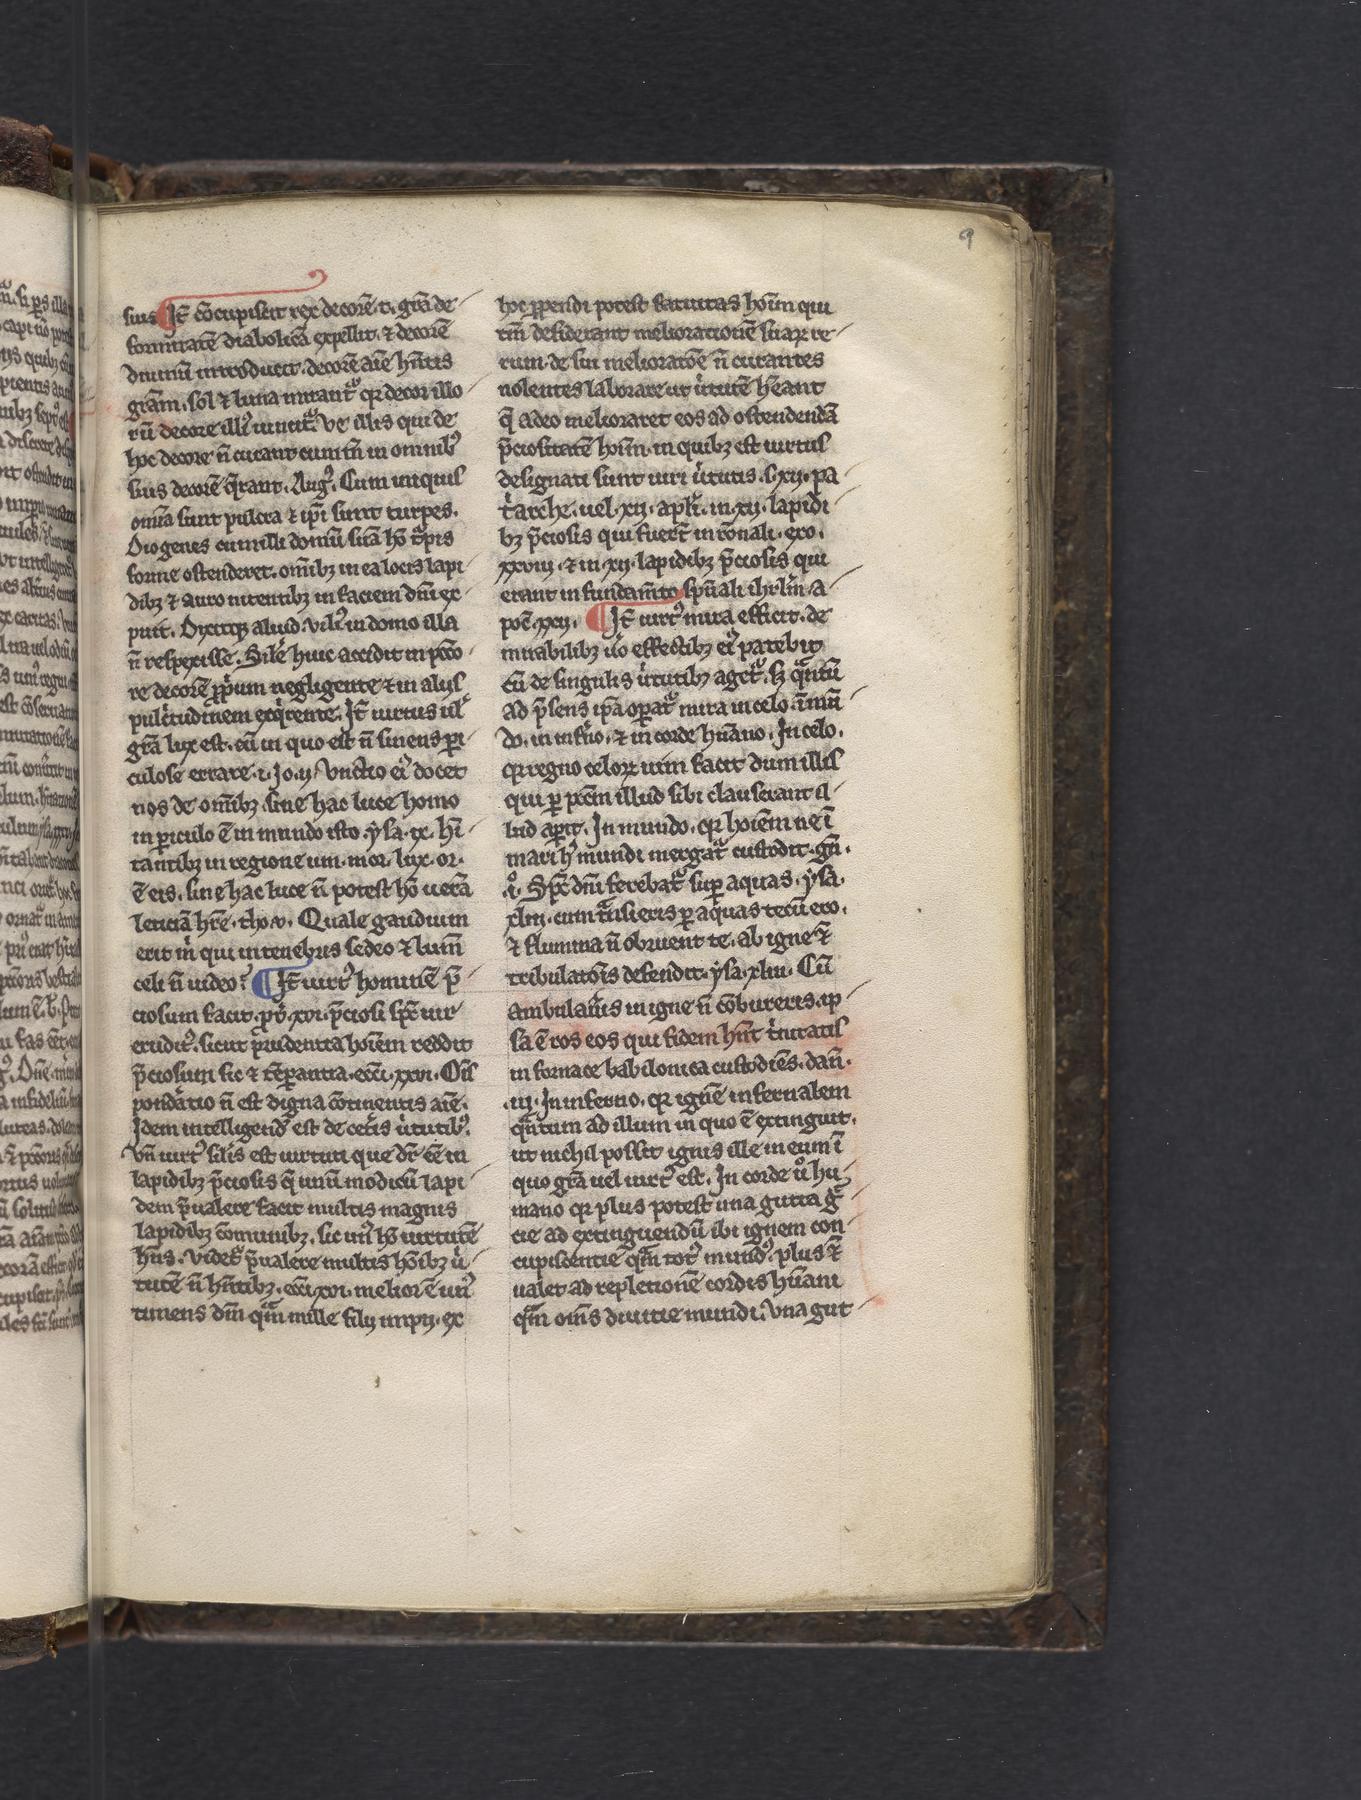 9
suis ¶ Iť cōcupiscit rex decorē t̄. gr̄a de
formitatē diabolicā expellit. ⁊ decorē
diuinū introducit. decorē aīe hn̄tis
gr̄am. sol ⁊ luna mirant᷑ qꝛ decor illo
rū decore illiꝰ uincit᷑. Ve illis qui de
hoc decore n̄ curant cum tn̄ in omnibꝰ
suis decorē q̄rant. Augꝰ. Cum iniquis
oīa sunt pulcra ⁊ ip̄i sunt turpes.
Diogenes cum illi domū suā hō t᷑pis
forme ostenderet. om̄ibꝫ in ea locis lapi
dibꝫ ⁊ auro nitentibꝫ in faciem dn̄i ex
puit. Dixitqꝫ aliud viliꝰ in domo illa
n̄ respexisse. Sil̄e huic accidit in pctō
re decorē ꝓp̄um negligente ⁊ in alijs
pulc̓tudinem exq̓rente. Iť uirtus ul̓
gr̄a lux est. cū in quo est n̄ sinens ꝑi
culose errare. i. Io. ij. Vnctio eiꝰ docet
nos de om̄ibꝫ. sine hac luce homo
in ꝑiculo ē in mundo isto. ysa. ix. hī
tantibꝫ in regione um. mor. lux. or.
ē eis. sine hac luce n̄ potest hō uerā
leticiā hr̄e. tho. v. Quale gaudium
erit m̓ qui in tenebris sedeo ⁊ lum̄
celi n̄ uideo? ¶ Iť uirtꝰ hominē p̄
ciosum facit. ꝓū. xvi. p̄ciosi sp̄c uir
eruditꝰ. sicut prudentia hoīem reddit
p̄ciosum sic ⁊ tēꝑantia. ecci. xxvi. Oīs
pond̓atio n̄ est digna cōtinentis aīe.
Idem intelligend̄ est de cet̓is u̓tutibꝰ.
Vn̄ uirtꝰ sil̓is est uirtuti que dr̄ eē in
lapidibꝫ p̄ciosis q̄ unū modicū lapi
dem p̄ualere facit multis magnis
lapidibꝫ cōmunibꝫ. sic unꝰ hō uirtutē
hn̄s. videt᷑ p̄ualere multis hōibꝫ u̓
tutē n̄ hn̄tibꝫ. ecci. xvi. melior ē unꝰ
timens dm̄ qm̄ mille filij impij. ex
hoc ꝑpendi potest fatuitas hoīm qui
tm̄ desiderant meliorationē suaꝝ re
rum. de sui melioratōe n̄ curantes
nolentes laborare ut u̓tutē hēant
q̄ adeo melioraret eos ad ostendendā
p̄ciositatē hoīm. in quibꝫ est uirtus
designati sunt uiri u̓tutis. s. xij. pa
t̓arche. uel. xij. apl̓i. in. xij. lapidi
bꝫ p̄ciosis qui fuer̄t in rōnali. exo.
xxviij. ⁊ in xij. lapidibꝫ p̄ciosis qui
erant in fundam̄to sp̄uali ihrl̄m. a
poc̄. xxij. ¶ Iť uirtꝰ mira efficit. de
mirabilibꝫ u̓o effectibꝫ eiꝰ patebit
cū de singulis u̓tutibꝫ aget᷑. sꝫ q̄ntū
ad p̄sens ip̄a oꝑat᷑ mira in celo. ī mū
do. in inf̓no. ⁊ in corde hūano. In celo.
qꝛ regno celoꝝ uim facit dum illis
qui ꝑ pctm̄ illud sibi clauserant il
lud aꝑit. In mundo. qꝛ hoīem ne ī
mari hꝰ mundi mergat᷑ custodit. gn̄.
.i. Sp̄c dn̄i ferebat᷑ suꝑ aquas. ysa.
xliij. cum t̓nsieris ꝑ aquas tecū ero.
⁊ flumina n̄ obruent te. ab igne ⁊̄
tribulatōis defendit. ysa. xliij. Cū
ambulau̓is in igne n̄ cōbureris. ip
sa ē ros eos qui fidem hn̄t t̓nitatis
in fornace babilonica custodiēs. dan̄.
.iij. In inferno. qꝛ ignē infernalem
q̄ntum ad illum in quo ē extinguit.
ut nichil possit ignis ille in eum ī
quo gr̄a uel uirtꝰ est. In corde u̓o hu
mano qꝛ plus potest una gutta gr̄
cie ad extinguendū ibi ignem con
cupiscentie qm̄ totꝰ mundꝰ. plus ⁊̄
ualet ad repletionē cordis hūani
qm̄ om̄s diuitie mundi. Vna gut